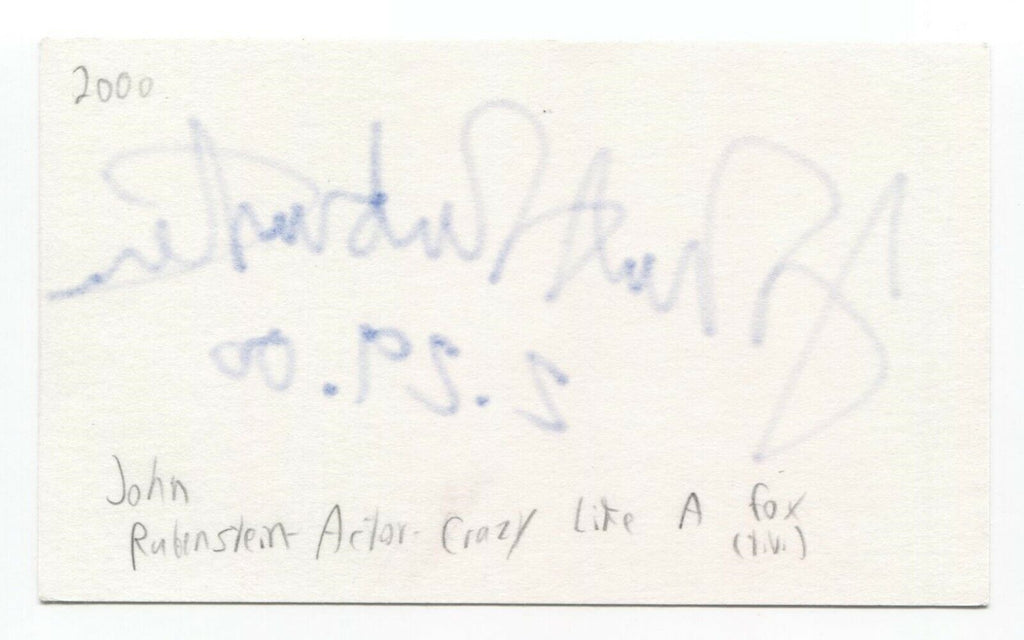 2000
2.29.00
John
Rubenstein- Actor- Crazy Like A fox
(t.v.)